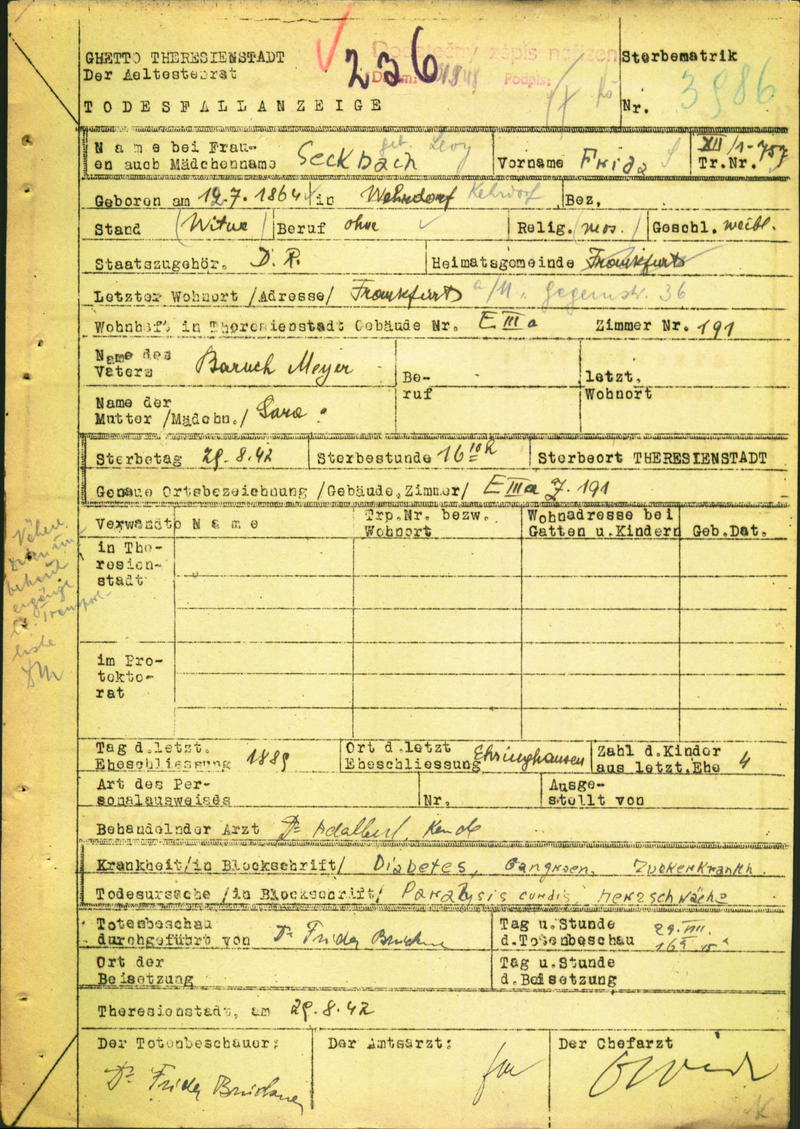 GHETTO THERESIENSTADT
Der Aeltestenrat
236
Sterbematrik
TODESFALLANZEIGE
Nr. 3986
Name bei Frau-
en auch Mädchenname Seckbach geb. Levy Vorname Frida XII/1-757
Tr.Nr.
Geboren am 12.7.1864 in Wehrdorf Kehrdorf Bez.
Stand (Witwe) Beruf ohne Relig. (mos.) Geschl. weibl.
Staatszugehör. D.R. Heimatsgemeinde Frankfurt
Letzter Wohnort /Adresse/ Frankfurt a/M. 36
Wohnhaft in Theresienstadt Gebäude Nr. E IIIa Zimmer Nr. 191
Name des
Vaters Baruch Meyer Be-
ruf letzt.
Wohnort
Name der
Mutter /Mädchn./ Sara ?
Sterbetag 29.8.42 Sterbestunde 16 10 h Sterbeort THERESIENSTADT
Genaue Ortsbezeichnung /Gebäude, Zimmer/ E IIIa Z. 191
Verwandte Name Trp.Nr. bezw.
Wohnort Wohnadresse bei
Gatten u.Kindern Geb.Dat.
in The-
resien-
stadt
im Pro-
tekto-
rat
Tag d.letzt.
Eheschliessung 1889 Ort d.letzt
Eheschliessung Ehringhausen Zahl d.Kinder
aus letzt.Ehe 4
Art des Per-
sonalausweises Nr. Ausge-
stellt von
Behandelnder Arzt Dr Adalbert
Krankheit/in Blockschrift/ Diabetes, Gangraen. Zuckerkrankh.
Todesursache /in Blockschrift/ Paralysis cordis Herzschwäche
Totenbeschau
durchgeführt von Dr Frida Tag u.Stunde
d.Totenbeschau 29.VIII.
Ort der
Beisetzung Tag u.Stunde
d.Beisetzung
Theresienstadt, am 29.8.42
Der Totenbeschauer: Der Amtsarzt: Der Chefarzt
Dr Frida